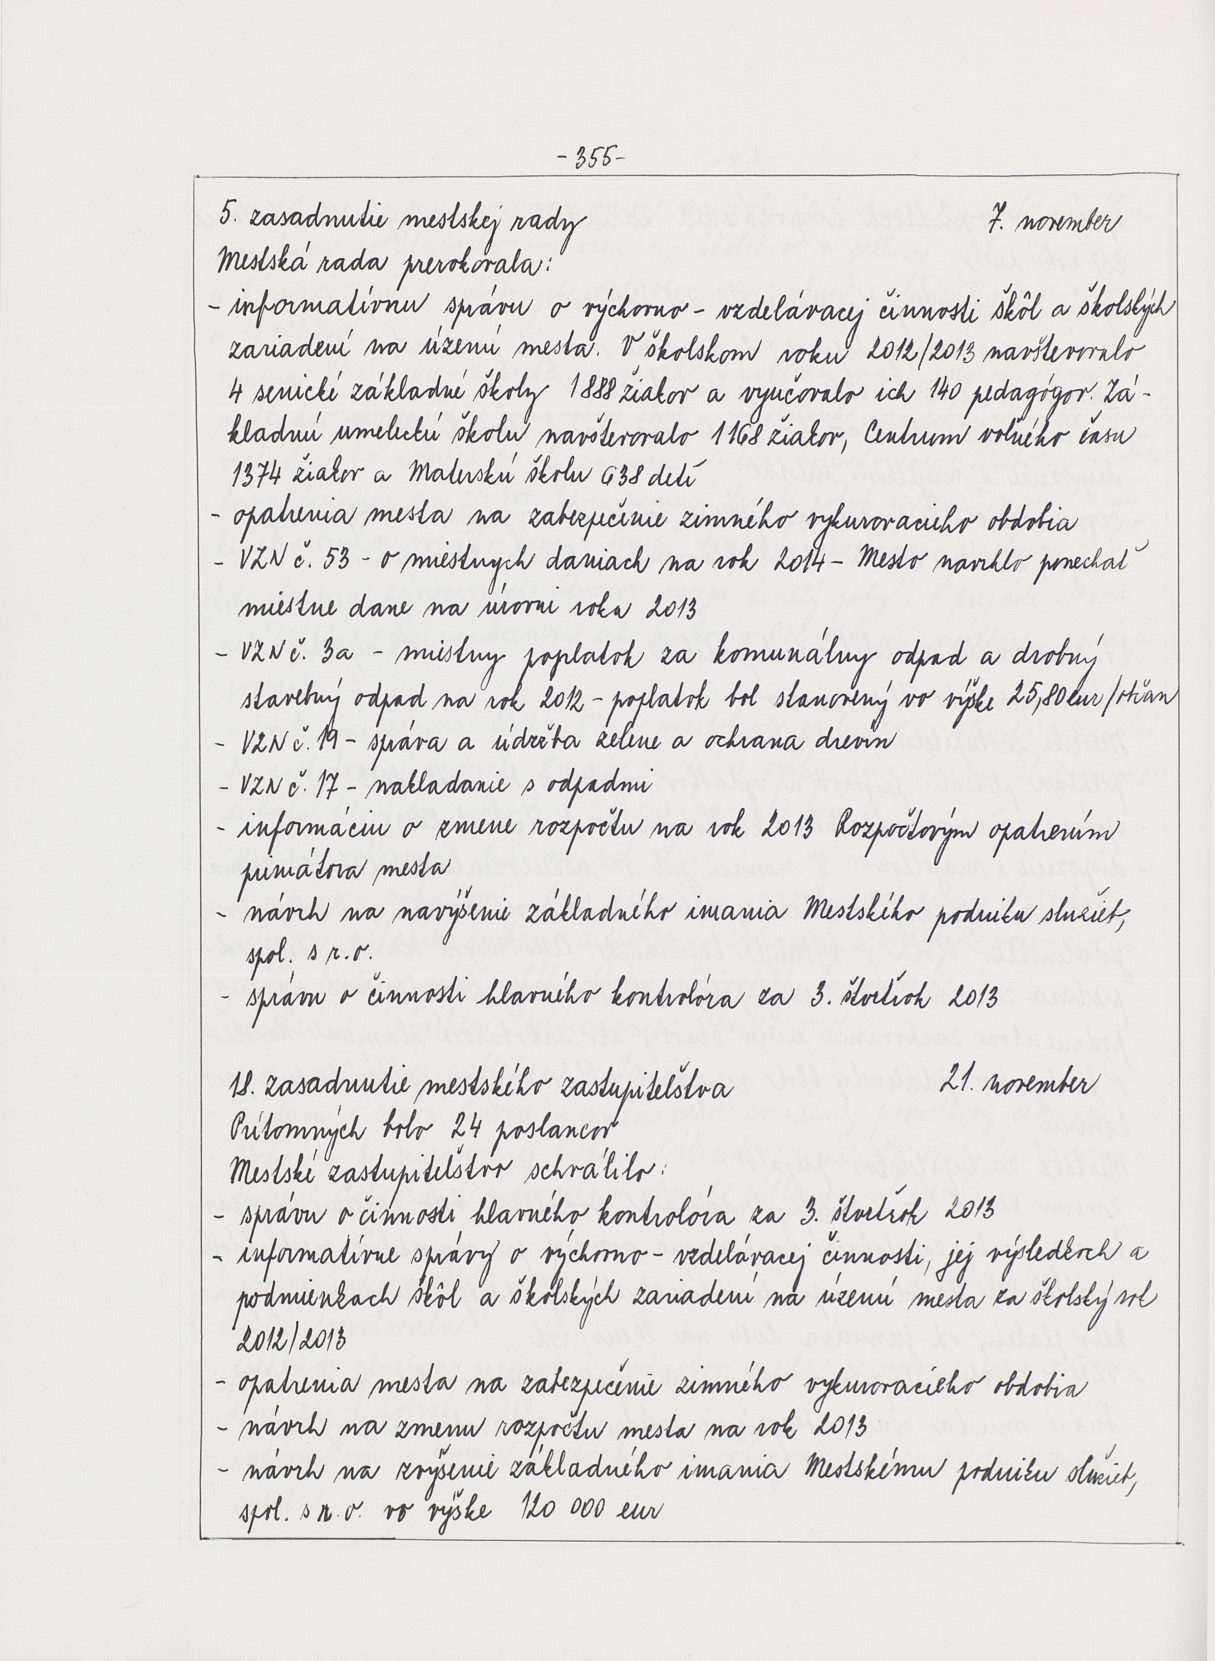 -355-
5. zasadnutie mestskej rady 7. november
Mestská rada prerokovala:
- informatívnu správu o výchovno - vzdelávacej činnosti škôl a školských
zariadení na území mesta. V školskom roku 2012/2013 navštevovalo
4 senické základné školy 1888 žiakov a vyučovalo ich 140 pedagógov. Zá-
kladnú umeleckú školu navštevovalo 1168 žiakov, Centrum voľného času
1374 žiakov a Materskú školu 638 detí
- opatrenia mesta na zabezpečenie zimného vykurovacieho obdobia
- VZN č. 53 - o miestnych daniach na rok 2014 - Mesto navrhlo ponechať
miestne dane na úrovni roku 2013
- VZN č. 3a - miestny poplatok za komunálny odpad a drobný
stavebný odpad na rok 2012 - poplatok bol stanovený vo výške 25,80 eur/občan
- VZN č. 19 - správa a údržba zelene a ochrana drevín
- VZN č. 17 - nakladanie s odpadmi
- informáciu o zmene rozpočtu na rok 2013 Rozpočtovým opatrením
primátora mesta
- návrh na navýšenie základného imania Mestského podniku služieb,
spol. s r.o.
- správu o činnosti hlavného kontrolóra za 3. štvrťrok 2013
18. zasadnutie mestského zastupiteľstva 21. november
Prítomných bolo 24 poslancov
Mestské zastupiteľstvo schválilo:
- správu o činnosti hlavného kontrolóra za 3. štvrťrok 2013
- informatívne správy o výchovno - vzdelávacej činnosti, jej výsledkoch a
podmienkach škôl a školských zariadení na území mesta za školský rok
2012/2013
- opatrenia mesta na zabezpečenie zimného vykurovacieho obdobia
- návrh na zmenu rozpočtu mesta na rok 2013
- návrh na zvýšenie základného imania Mestskému podniku služieb,
spol. s r.o. vo výške 120 000 eur